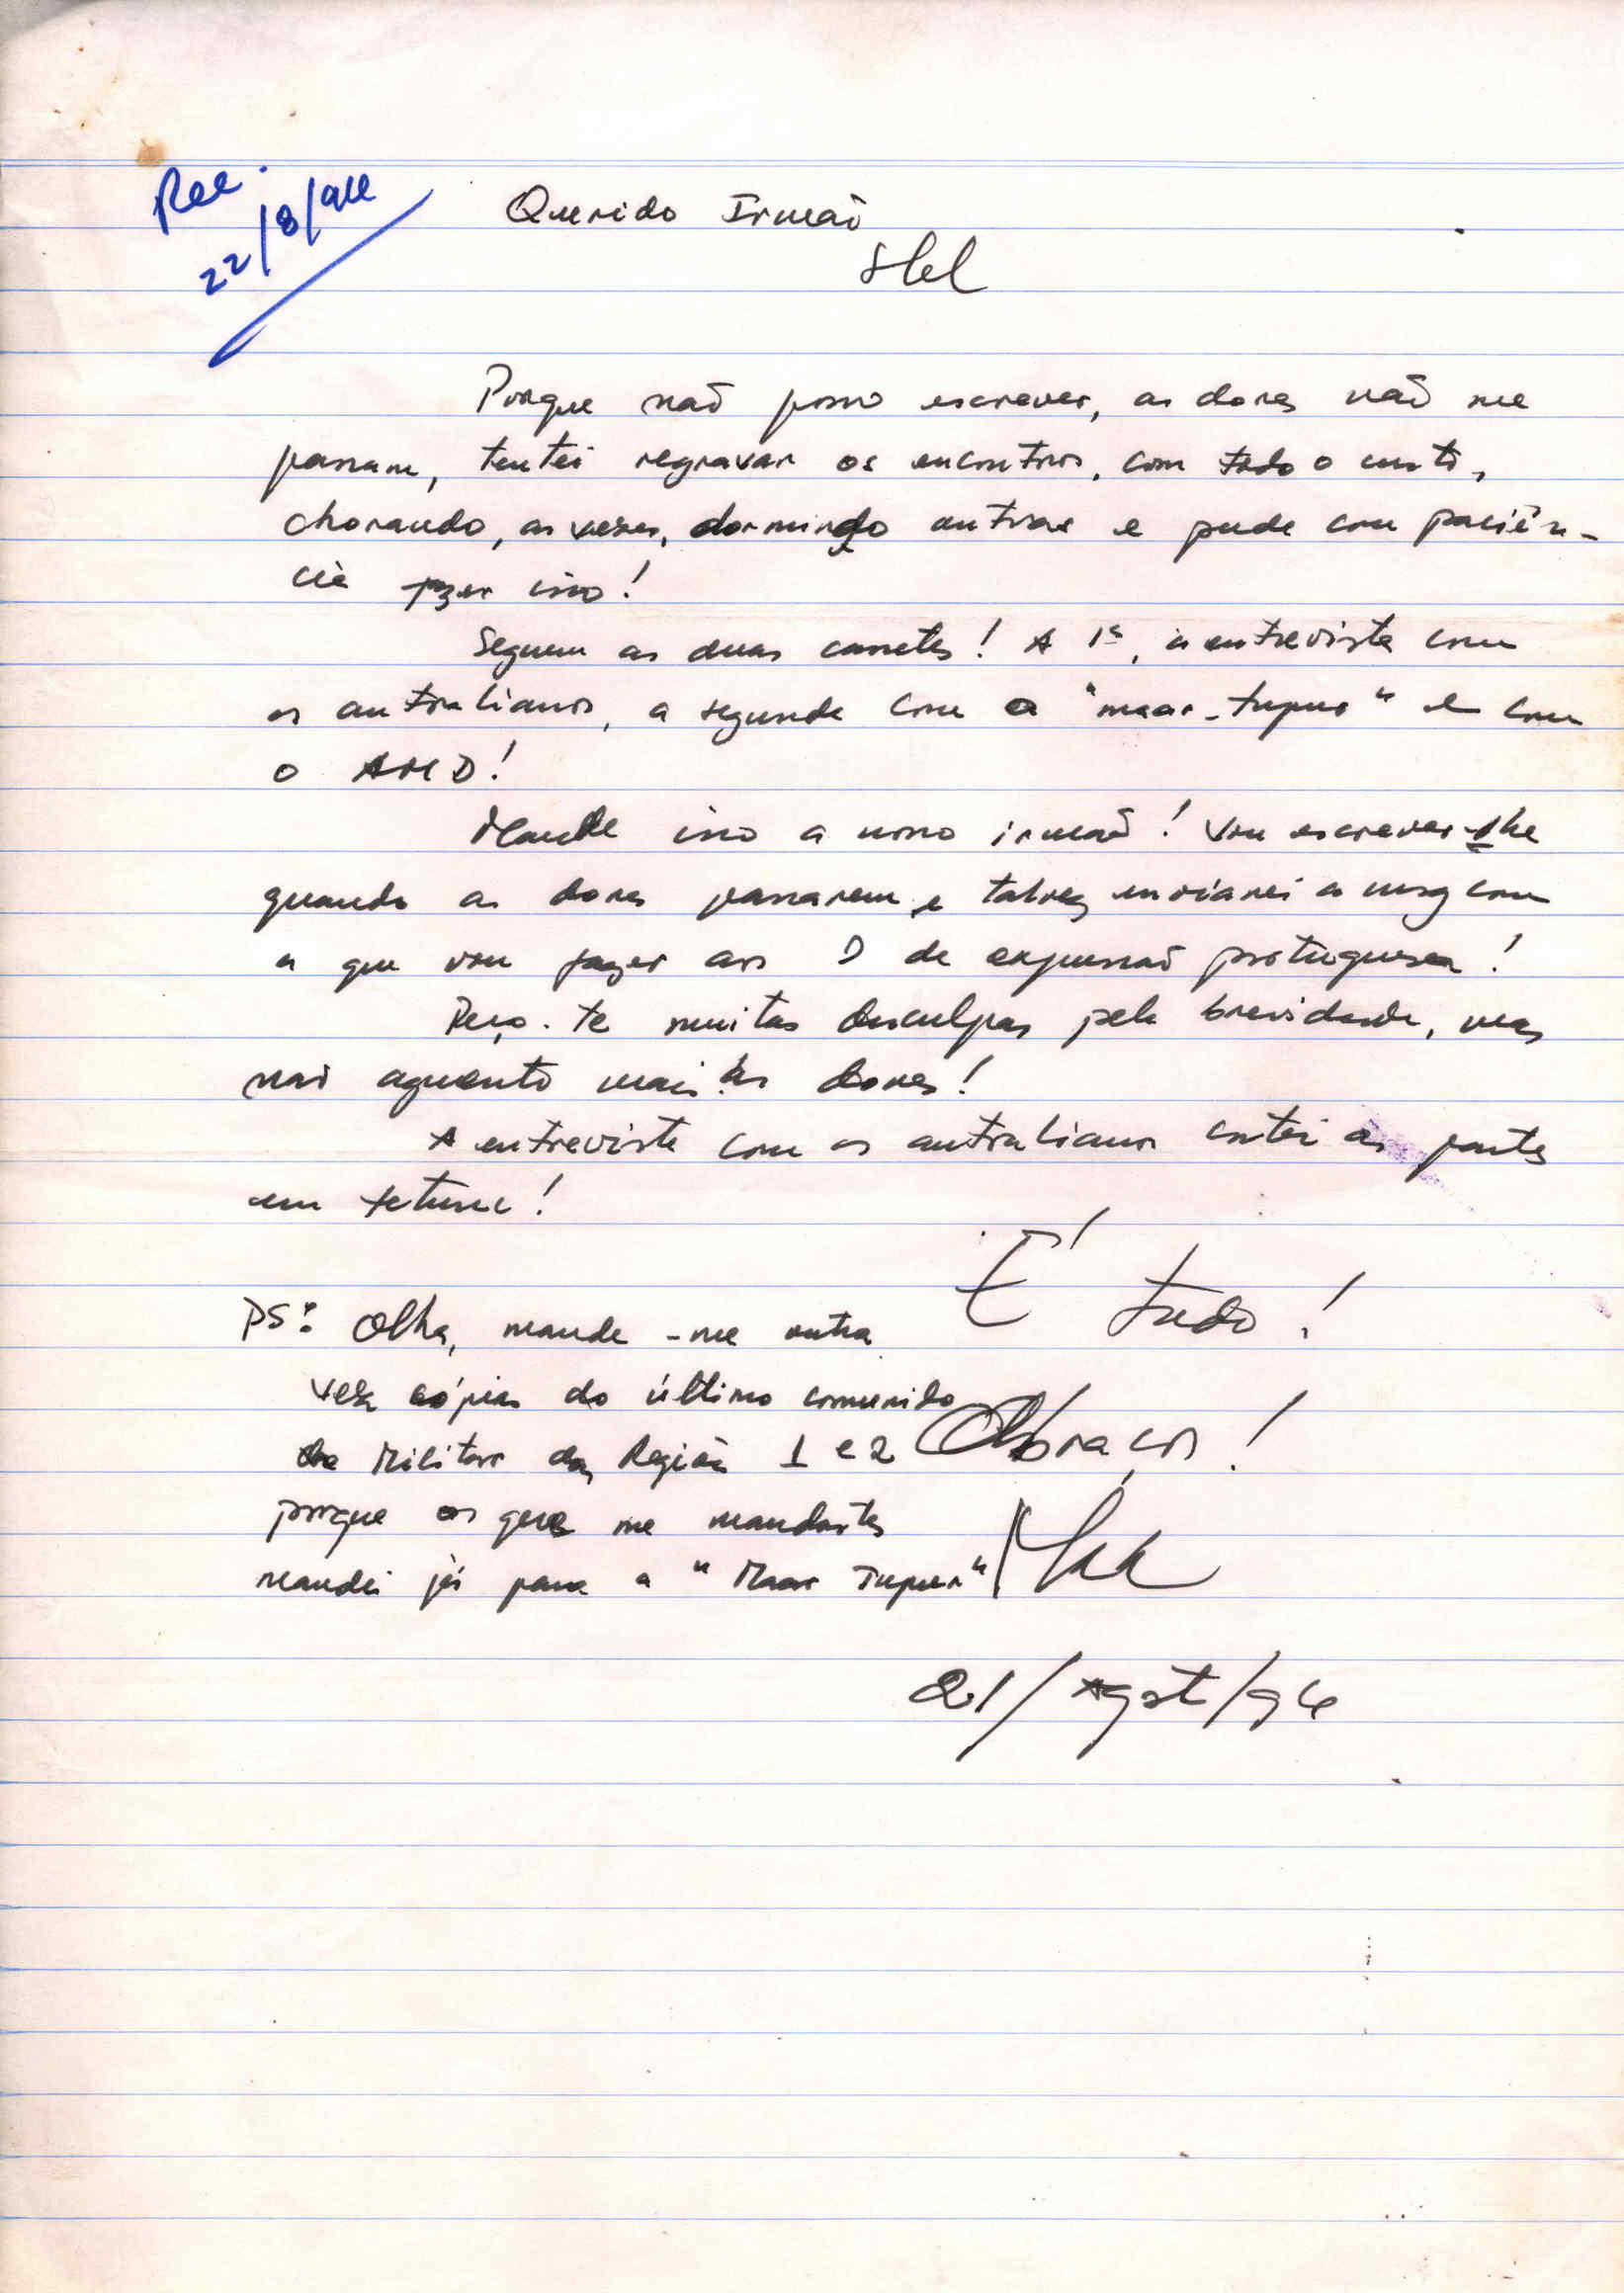 Rec.
22/8/94
Querido Irmão
Porque não posso escrever, as dores não me
passam, tentei regravar os encontros, com todo o custo,
chorando, as vezes, dormindo outras e pude com paciên-
cia fazer isso!
Seguem as duas cassetes! A 1ª, a entrevista com
os australianos, a segunda com a "maar-tupus" e com
o AMD!
Mande isso a nosso irmão! Vou escrever-lhe
quando as dores passarem e talvez enviarei a msg com
a que vou fazer aos de expressão portuguesa!
Peço-te muitas desculpas pela brevidade, mas
não aguento mais as dores!
A entrevista com os australianos cortei as partes
em tetum!
É tudo!
PS: Olha, mande-me outra
vez cópias do último comunido
Militar da Região 1 e 2
porque os que me mandastes
mandei já para a "Maar Tupus"
Abraços!
21/Agst/94